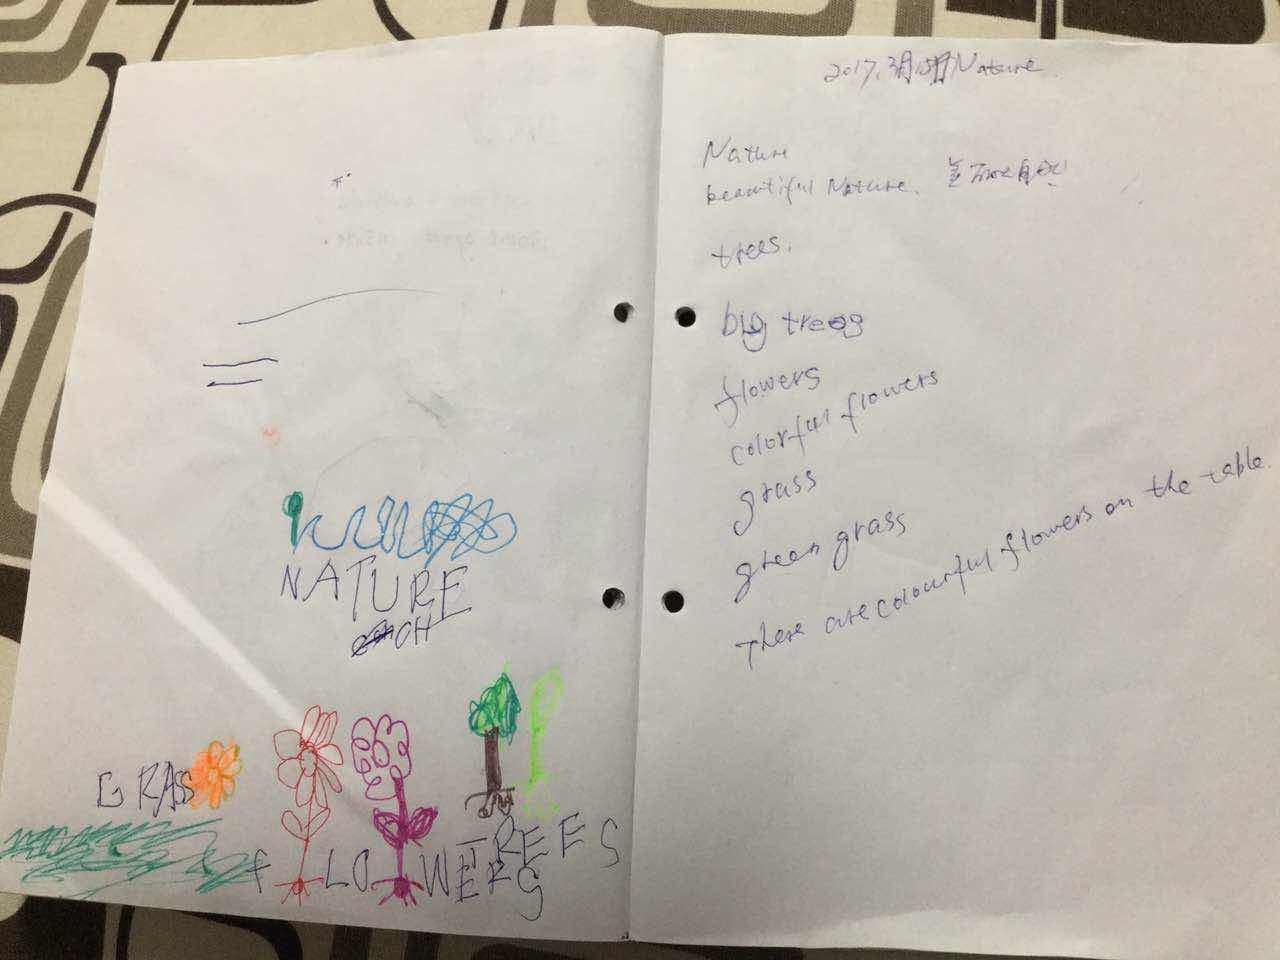 NATURE
OH
GRASS
TREES
fLOWERS
2017.3月15日Nature
Nature
beautiful Nature. 美丽的自然
trees.
big trees
flowers
colorful flowers
grass
green grass
There are colourful flowers on the table.